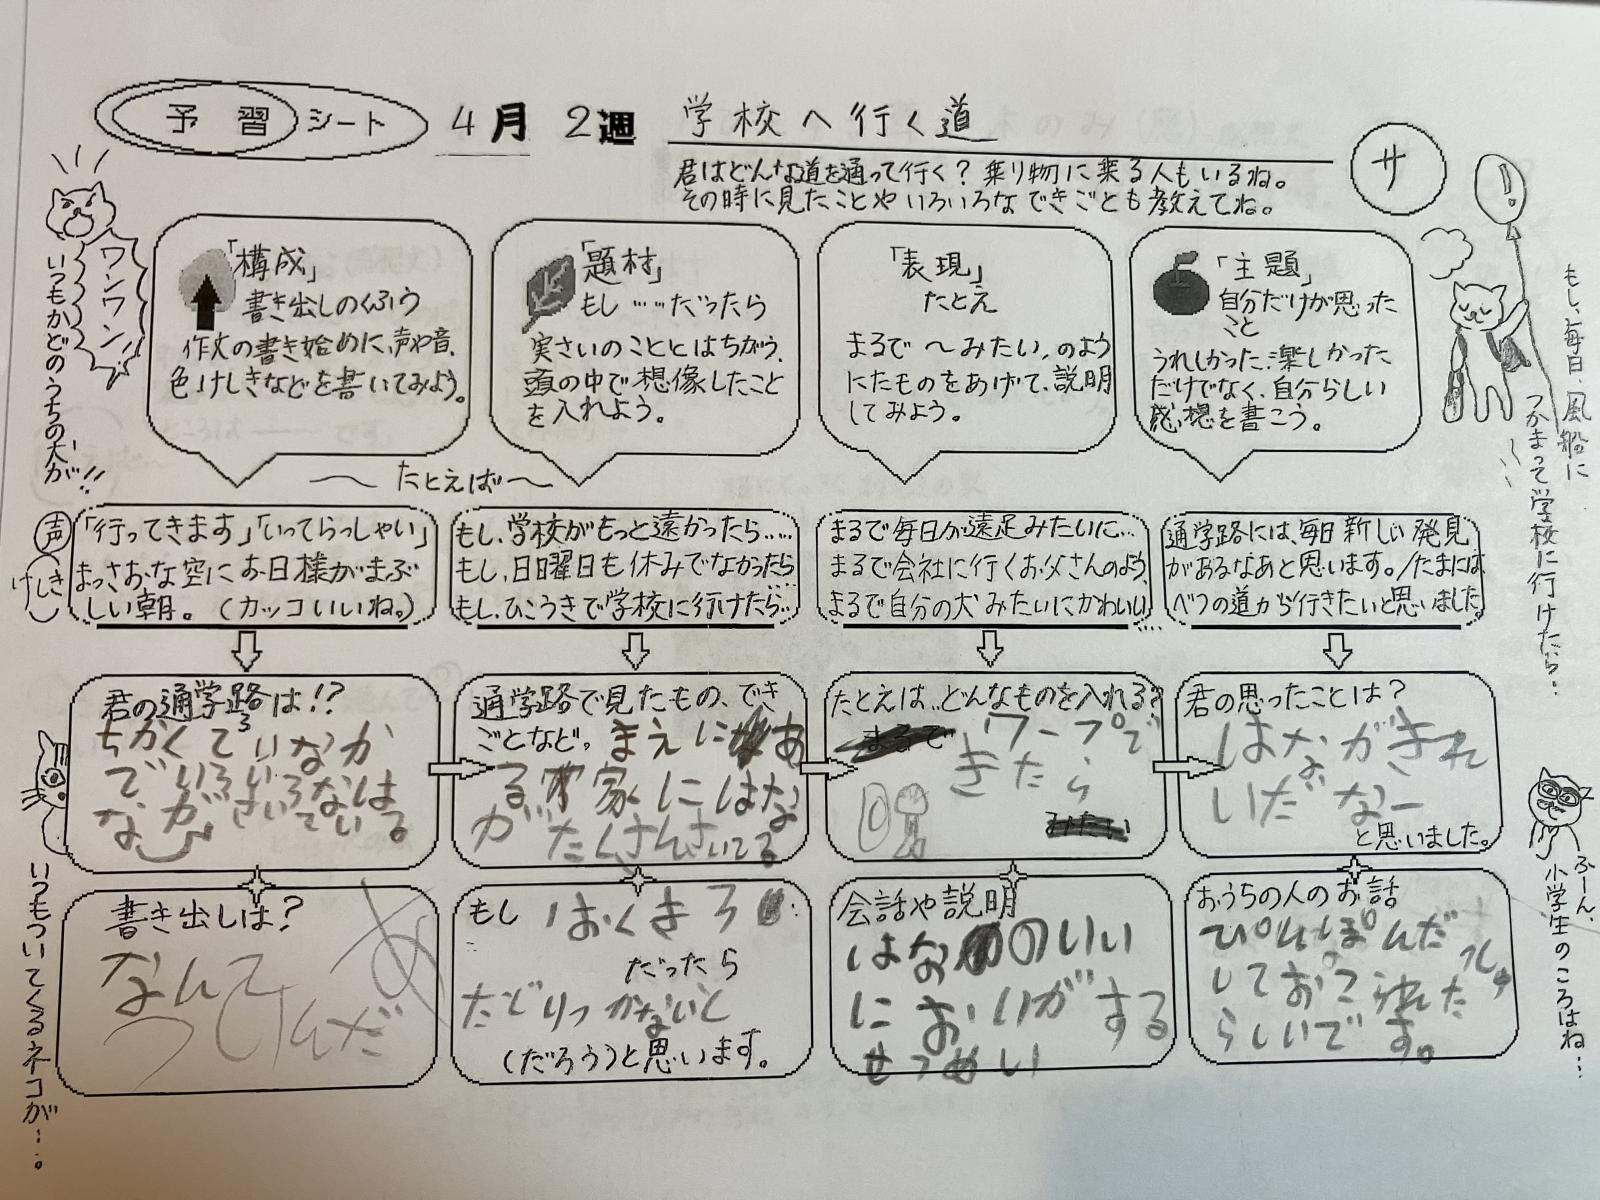 予習シート 4月 2週 学校へ行く道
君はどんな道を通って行く?乗り物に乗る人もいるね。
その時に見たことやいろいろなできごとも教えてね。
サ
ワンワン!
いつもかどのうちの犬が!!
「構成」
書き出しのくふう
作文の書き始めに、声や音、
色、けしきなどを書いてみよう。
「題材」
もし……だったら
実さいのこととはちがう、
頭の中で想像したこと
を入れよう。
「表現」
たとえ
まるで〜みたい。のよう
にたものをあげて、説明
してみよう。
「主題」
自分だけが思った
こと
うれしかった、楽しかった
だけでなく、自分らしい
感想を書こう。
!
もし、毎日、風船に
つかまって学校に行けたら…
〜たとえば〜
声
けしき
「行ってきます」「いってらっしゃい」
まっさおな空にお日様がまぶ
しい朝。(カッコいいね。)
もし、学校がもっと遠かったら……
もし、日曜日も休みでなかったら
もし、ひこうきで学校に行けたら…
まるで毎日が遠足みたいに…
まるで会社に行くお父さんのよう、
まるで自分の犬みたいにかわいい
….
通学路には、毎日新しい発見
があるなあと思います。/たまには
べつの道から行きたいと思いました。
君の通学路は!?
ろ
ちかくていなか
でいろいろないは
ながさいている
通学路で見たもの、でき
ごとなど。まえにあ
る家にはな
がたくさんさいてる
たとえは‥どんなものを入れる?
ワープで
きたら
君の思ったことは?
はながきれ
いだなー
と思いました。
いつもついてくるネコが…。
書き出しは?
なんて
つけんだ
もし はくまろ
だったら
たどりつかないと
(だろう)と思います。
会話や説明
はなのいい
においがする
せつめい
おうちの人のお話
ぴんぽんだ
しておこられた
らしいです。
ふーん、
小学生のころはね…